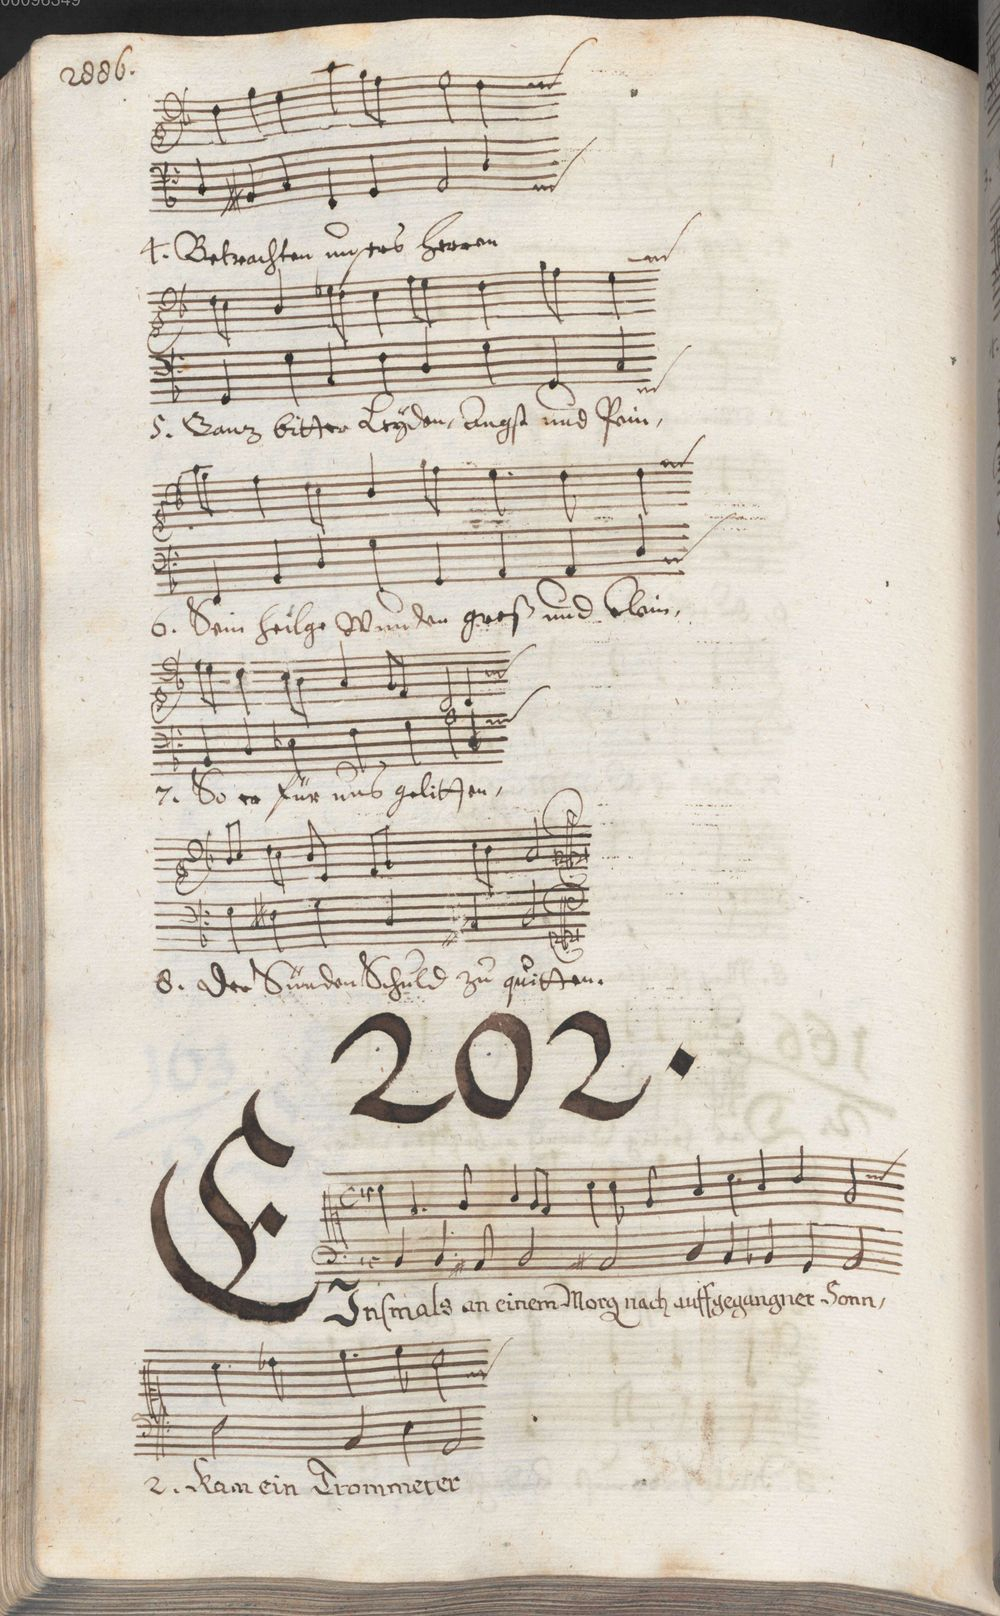 00096349
2886.
4. Betrachten unsers Herren
5. Ganz bitter Leÿden, angst und Pein,
6. Sein heilge Wunden groß und klein,
7. So er für uns gelitten,
8. Der Sünden Schuld zu quitten.
202.
EInsmals an einem Morg nach auffgegangner Sonn,
2. Kam ein Trommeter